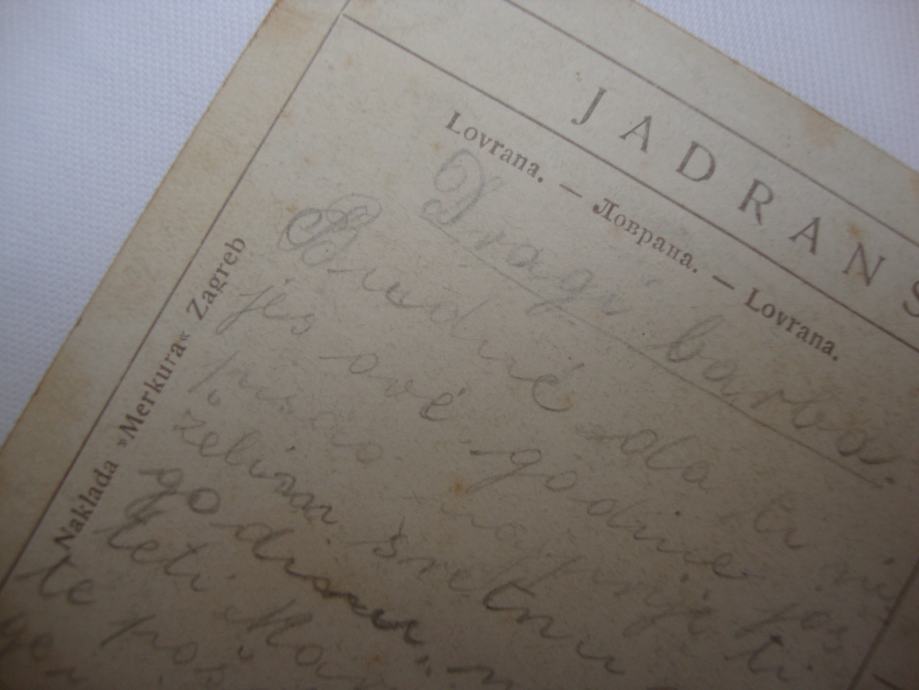 JADRANS
Lovrana. — Ловрана. — Lovrana.
Naklada »Merkura« Zagreb
Dragi barba.
Buduć da ti ni
jes ove godine jos
pisao najprije ti
želim sretnu
godinu,
leti
te